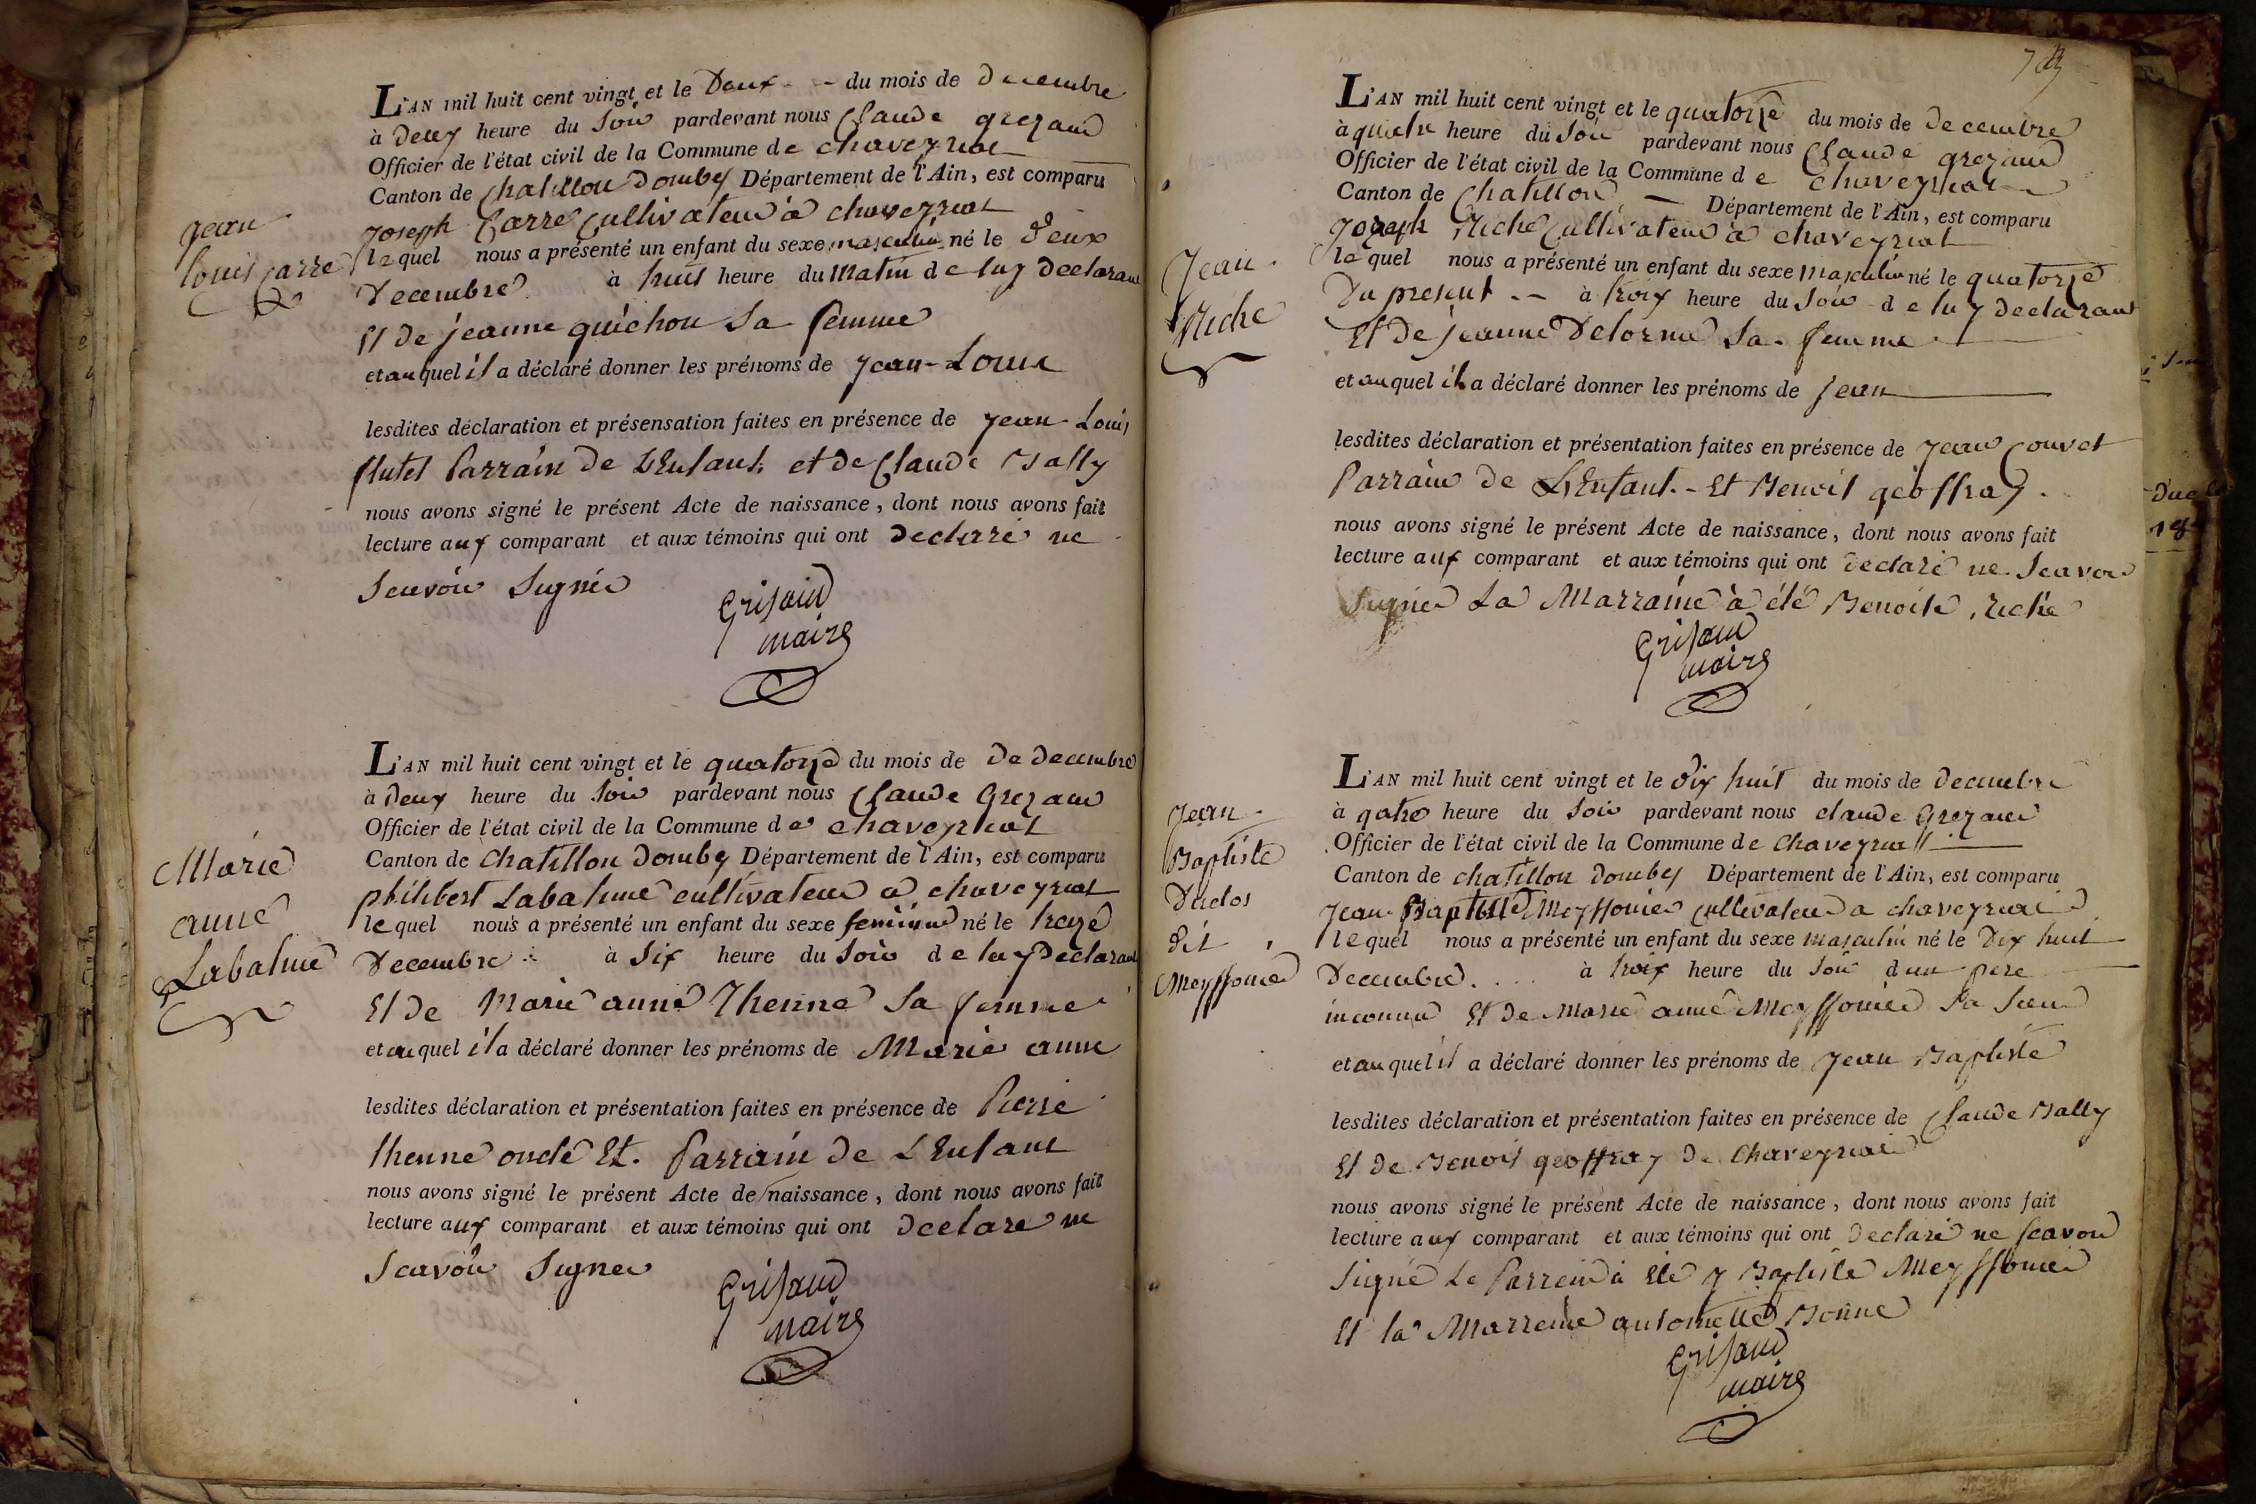 Jean
Louis Carre
L'AN mil huit cent vingt et le Deux du mois de Decembre
à deux heure du Soir pardevant nous Claude grezaud
Officier de l'état civil de la Commune de chaveyriat
Canton de Chatillon Dombes Département de l'Ain, est comparu
Joseph Carre Cultivateur à chaveyriat
lequel nous a présenté un enfant du sexe masculin né le Deux
Decembre à huit heure du Matin de luy Declarant
Et de jeanne guichon Sa femme
et auquel il a déclaré donner les prénoms de Jean-Louis
lesdites déclaration et présensation faites en présence de Jean Louis
flutet Parrain de L'Enfant, et de Claude Bally
nous avons signé le présent Acte de naissance, dont nous avons fait
lecture aux comparant et aux témoins qui ont declarré ne
Scavoir Signér
Grisaud
maire
Marie
anne
Labalme
L'AN mil huit cent vingt et le quatorze du mois de De Decembre
à deux heure du Soir pardevant nous Claude Grezaud
Officier de l'état civil de la Commune de chaveyriat
Canton de Chatillon Dombes Département de l'Ain, est comparu
philibert Labalme cultivateur a chaveyriat
lequel nous a présenté un enfant du sexe feminin né le treze
Decembre à Six heure du Soir de luy Declarant
Et de Marie anne Thenne Sa femme
et auquel il a déclaré donner les prénoms de Marie anne
lesdites déclaration et présentation faites en présence de Pierre
thenne oncle Et. Parrain de L'Enfant
nous avons signé le présent Acte de naissance, dont nous avons fait
lecture aux comparant et aux témoins qui ont declaré ne
Scavoir Signer
Grisaud
maire
Jean
Riche
L'AN mil huit cent vingt et le quatorze du mois de Decembre
à quatre heure du Soir pardevant nous Claude grezaud
Officier de l'état civil de la Commune de Chaveyriat
Canton de Chatillon Département de l'Ain, est comparu
Joseph Riche Cultivateur a chaveyriat
lequel nous a présenté un enfant du sexe masculin né le quatorze
Du present à troix heure du Soir de luy declarant
Et De jeanne Delorme Sa femme
et auquel il a déclaré donner les prénoms de Jean
lesdites déclaration et présentation faites en présence de Jean Couvet
Parrain de L'Enfant. - Et Benoit géoffray.
nous avons signé le présent Acte de naissance, dont nous avons fait
lecture aux comparant et aux témoins qui ont declaré ne Scavoir
Signer La Marraine à été Benoite Riche
Grisaud
maire
Jean
Baptiste
Duclos
dit
Meyssonier
L'AN mil huit cent vingt et le dix huit du mois de decembre
à qatre heure du Soir pardevant nous claude Grezaud
Officier de l'état civil de la Commune de Chaveyriat
Canton de chatillon dombes Département de l'Ain, est comparu
Jean Baptiste Meyssonier cultivateur a chaveyriat
lequel nous a présenté un enfant du sexe masculin né le Dix huit
Decembre à troix heure du Soir d'un pere
inconnu Et de Marie anne Meyssonier Sa Soeur
et auquel il a déclaré donner les prénoms de Jean Baptiste
lesdites déclaration et présentation faites en présence de Claude Bally
Et de Benoit geoffray de Chaveyriat
nous avons signé le présent Acte de naissance, dont nous avons fait
lecture aux comparant et aux témoins qui ont declaré ne scavoir
Signé Le Parrein à Eté J Baptiste Meyssonier
Et la Marreine antoinette Bonne
Grisaud
maire